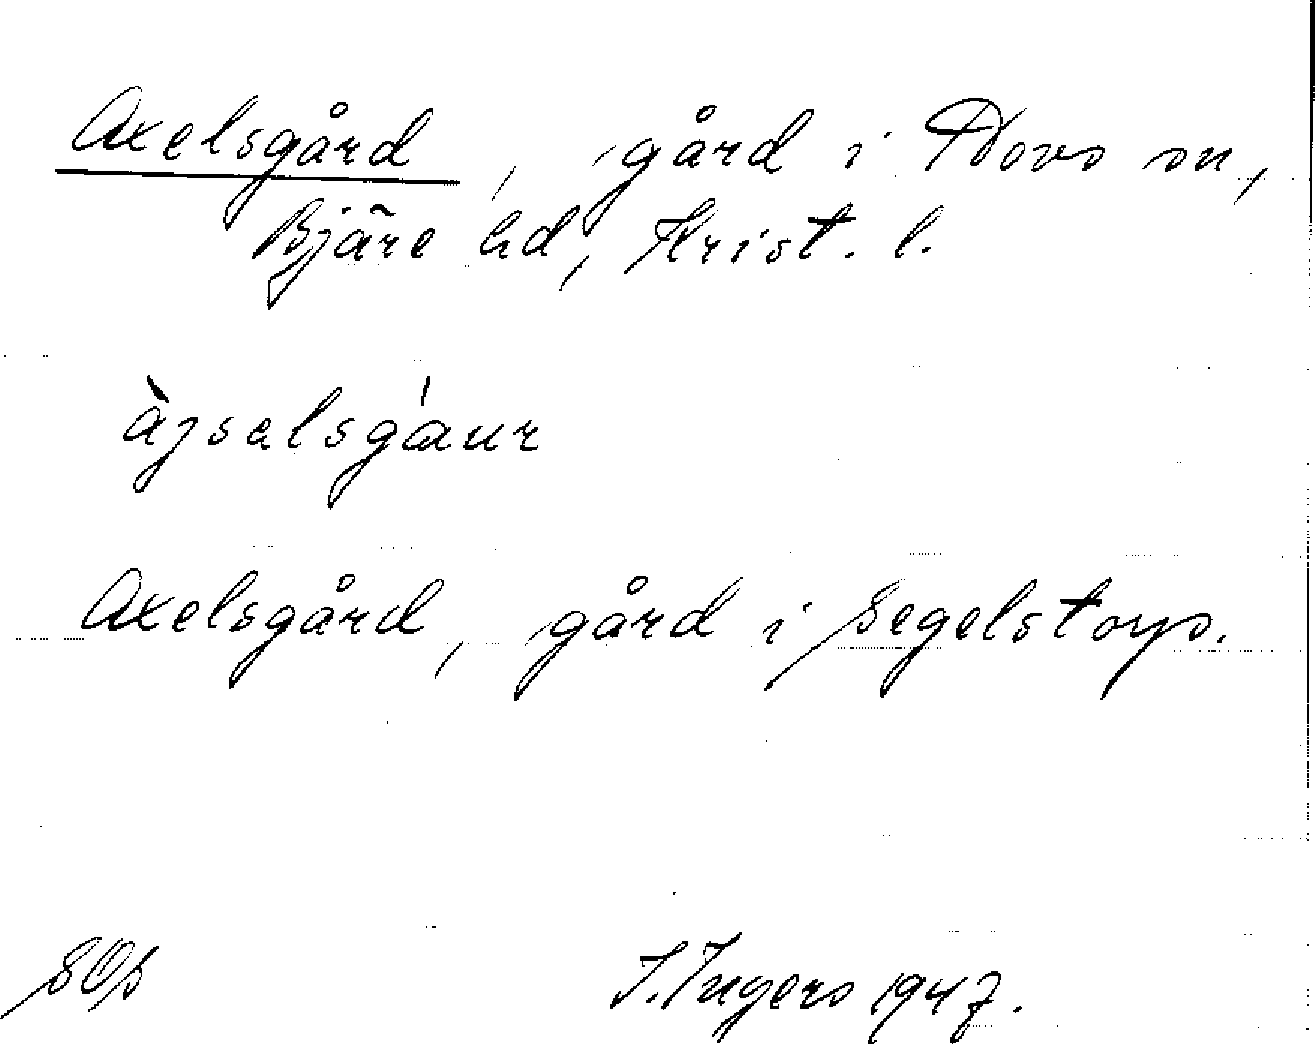 Axelsgård, gård i Hovs sn,
Bjäre hd, Krist. l.
àjselsgáur
Axelsgård, gård i Segelstorp.
I. Ingers 1947.